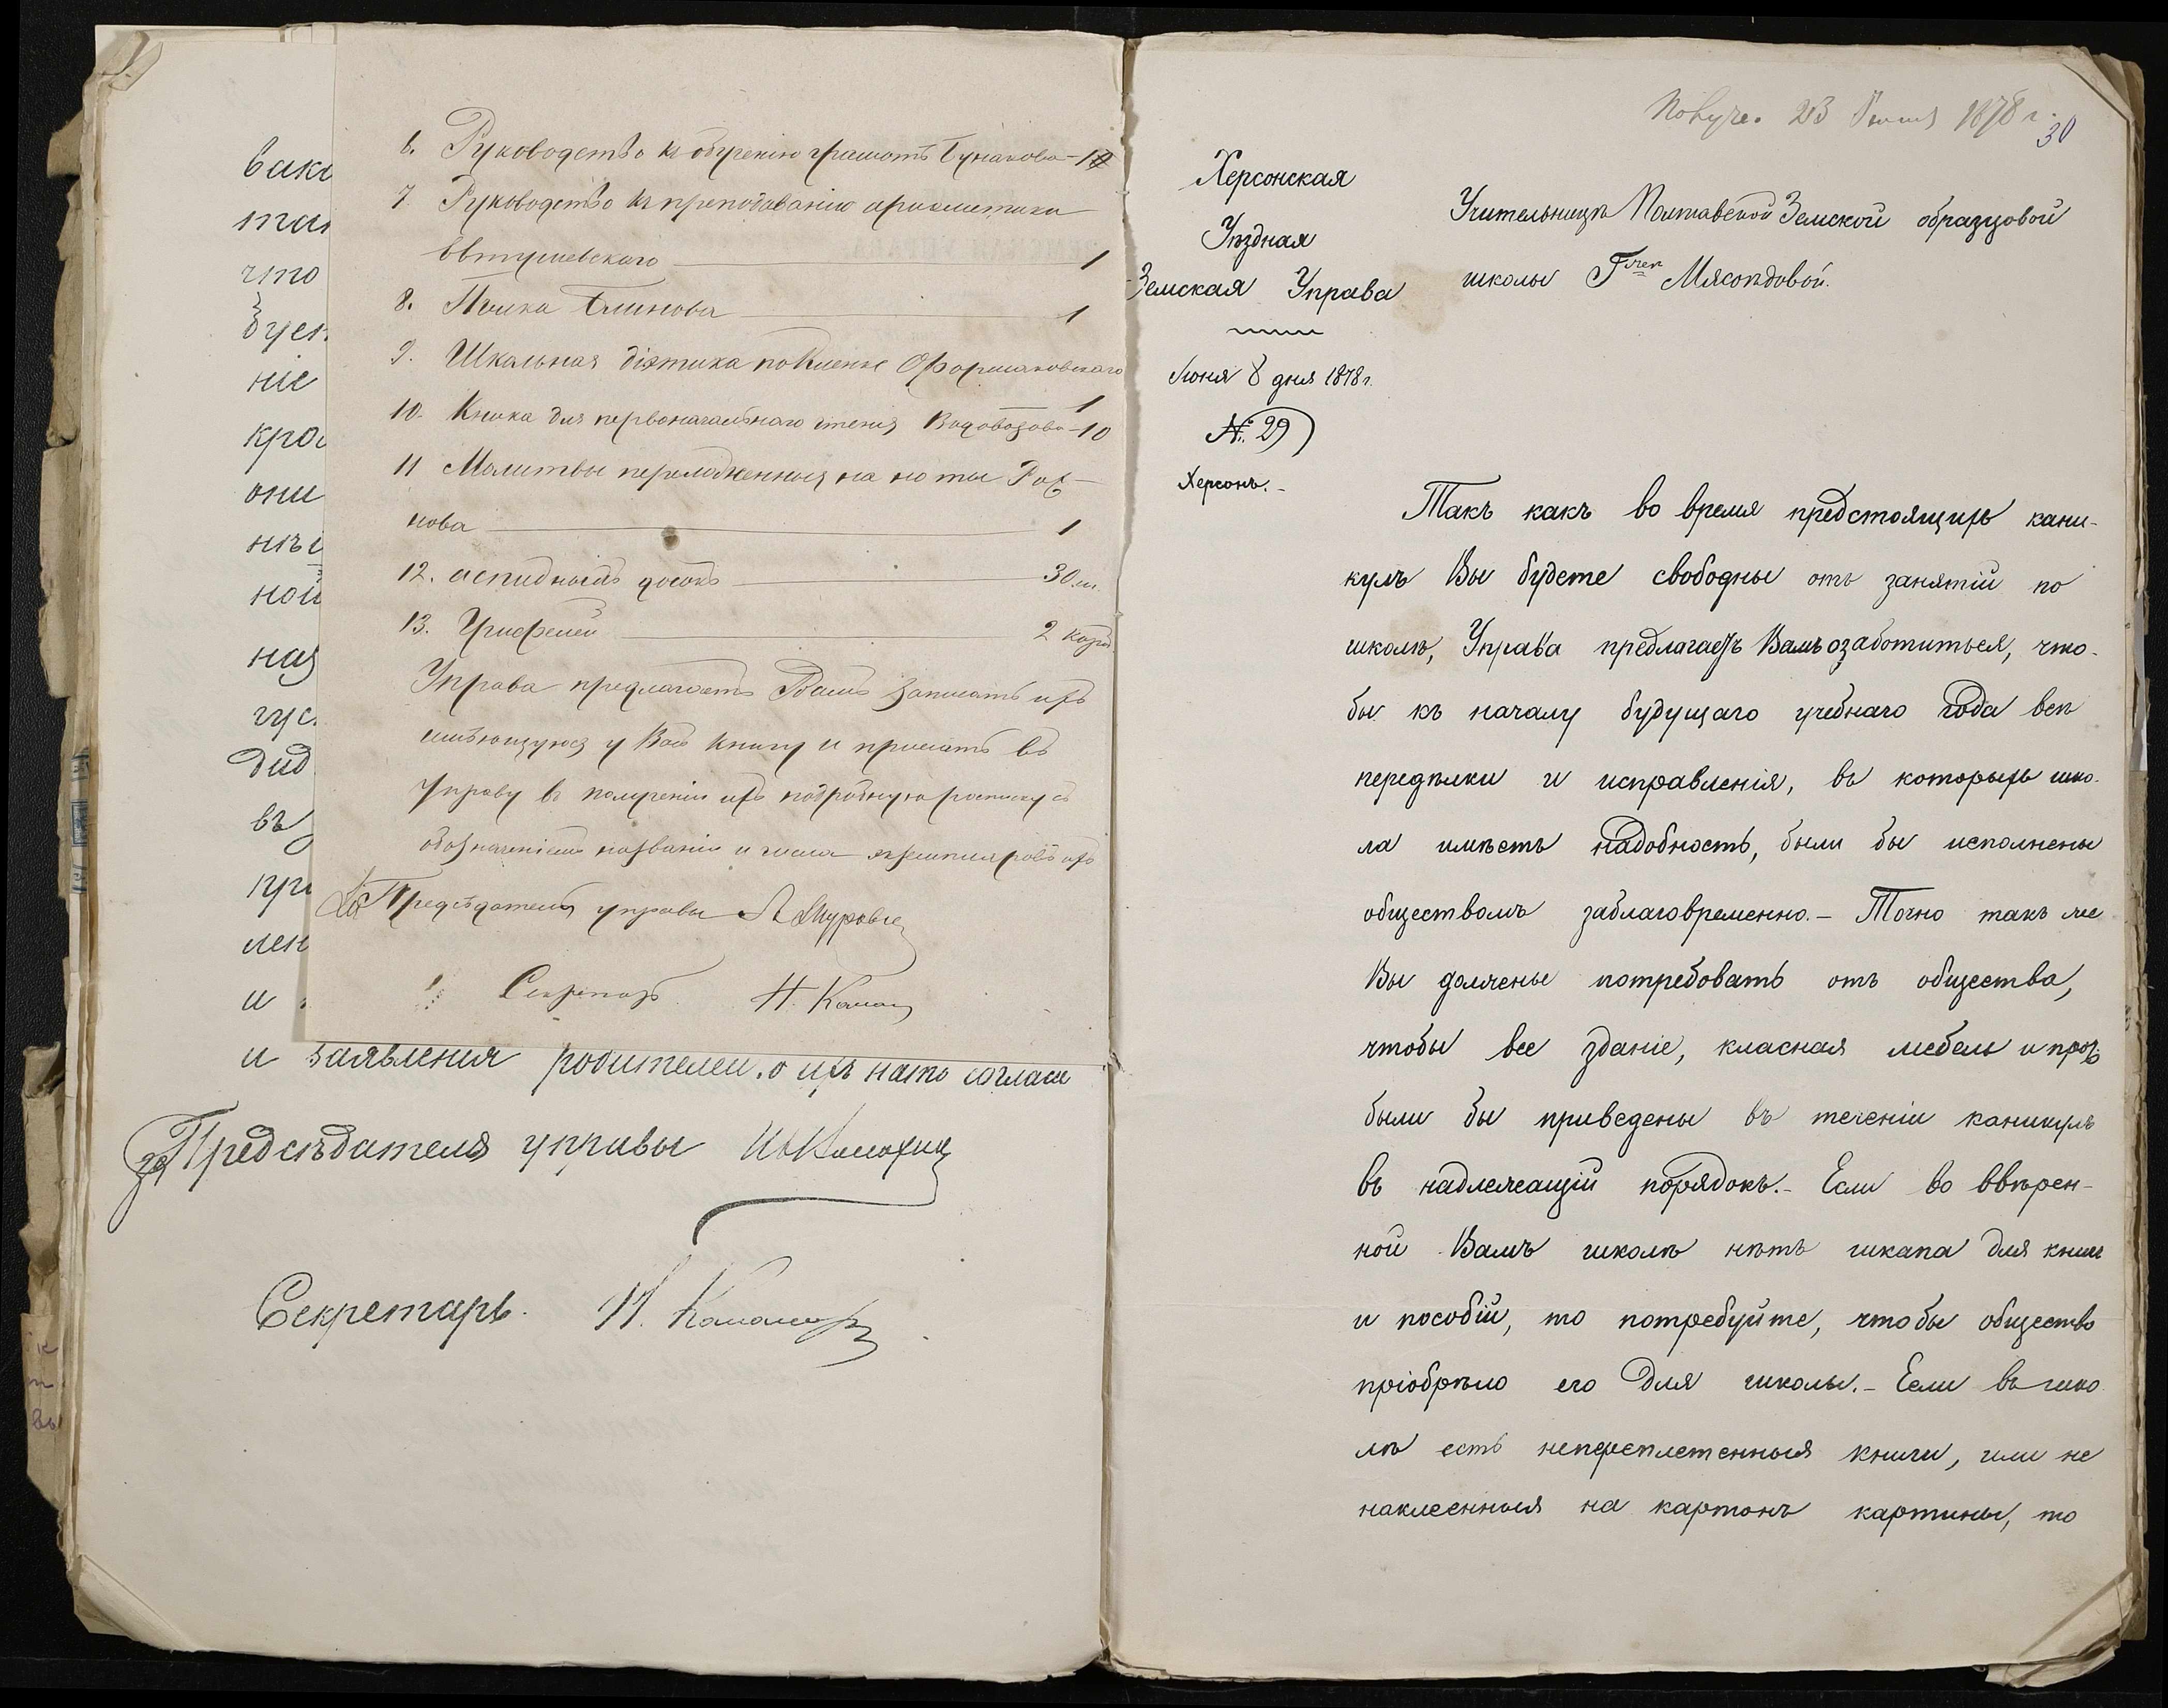 6. Руководство къ обученію грамотѣ Бунакова — 1
7. Руководство къ преподаванію ариѳметики
Евтушевскаго — 1
8. Пчелка Блинова — 1
9. Школьная діэтика по Кленке Фармаковскаго
1
10. Книжка для первоначальнаго чтенія Водовозова — 10
11 Молитвы переложенныя на ноты Рож-
нова — 1
12. аспидныхъ досокъ — 30 ш.
13. Грифелей — 2 короб.
Управа предлагаетъ Вамъ записать ихъ
имѣющуюся у Васъ книгу и прислать въ
Управу въ полученіи ихъ подробную росписку съ
обозначеніемъ названія и числа экземпляровъ ихъ
За Предсѣдателя управы
Секретарь Н.
ваки
что
ніе
они
ной
наз
гус
дид
въ
при
лен
и
и заявленія родителей, о ихъ на то согласіи
За Предсѣдателя управы
Секретарь. Н.
Получ. 23 Іюня 1878 г.
30
Херсонская
Уѣздная
Земская Управа
Іюня 8 дня 1878 г.
№ 29
Херсонъ. –
Учительницѣ Полтавской Земской образцовой
школы Г-жѣ Мясоѣдовой.
Такъ какъ во время предстоящихъ кани-
кулъ Вы будете свободны отъ занятій по
школѣ, Управа предлагаетъ Вамъ озаботиться, что-
бы къ началу будущаго учебнаго года всѣ
передѣлки и исправленія, въ которыхъ шко-
ла имѣетъ надобность, были бы исполнены
обществомъ заблаговременно. – Точно такъ же
Вы должны потребовать отъ общества,
чтобы все зданіе, класная мебель и проч.
были бы приведены въ теченіи каникулъ
въ надлежащій порядокъ. – Если во ввѣрен-
ной Вамъ школѣ нѣтъ шкапа для книгъ
и пособій, то потребуйте, чтобы общество
пріобрѣло его для школы. – Если въ шко
лѣ есть непереплетенныя книги, или не
наклеенныя на картонъ картины, то